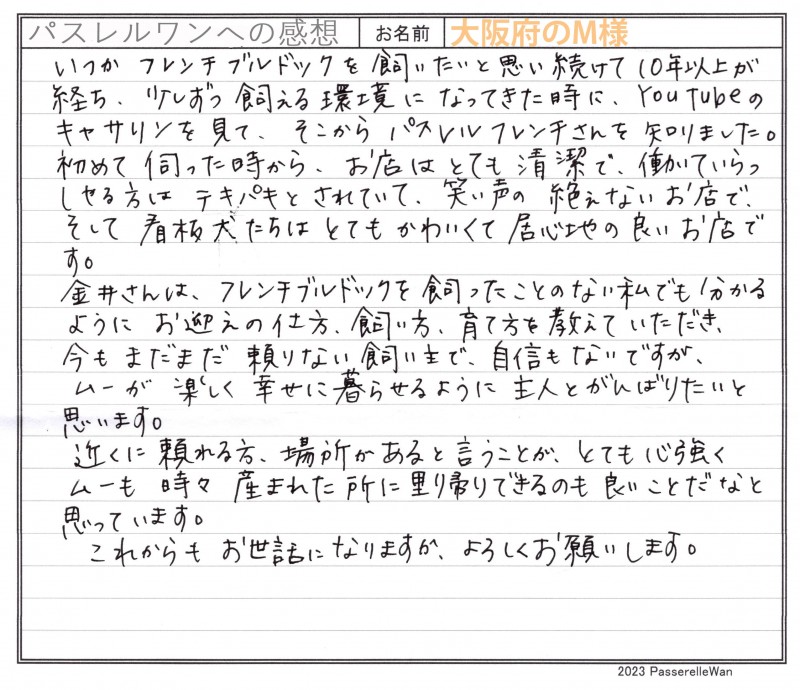 パスレルワンへの感想 お名前 大阪府のM様
いつか フレンチブルドックを 飼いたいと思い続けて10年以上が
経ち、少しずつ 飼える環境に なってきた時に、YouTubeの
キャサリンを見て、そこから パスレルフレンチさんを 知りました。
初めて 伺った時から、お店は とても 清潔で、働いていらっ
しゃる方は テキパキと されていて、笑い声の 絶えない お店で、
そして 看板犬たちは とても かわいくて 居心地の良い お店で
す。
金井さんは、フレンチブルドックを 飼ったことのない私でも 分かる
ように お迎えの仕方、飼い方、育て方を教えて いただき、
今も まだまだ 頼りない 飼い主で、自信も ないですが、
ムーが 楽しく 幸せに暮らせるように 主人とがんばりたいと
思います。
近くに 頼れる方、場所があると 言うことが、とても 心強く
ムーも 時々 産まれた 所に里り帰りできるのも 良いことだなと
思っています。
これからも お世話になりますが、よろしくお願いします。
2023 PasserelleWan